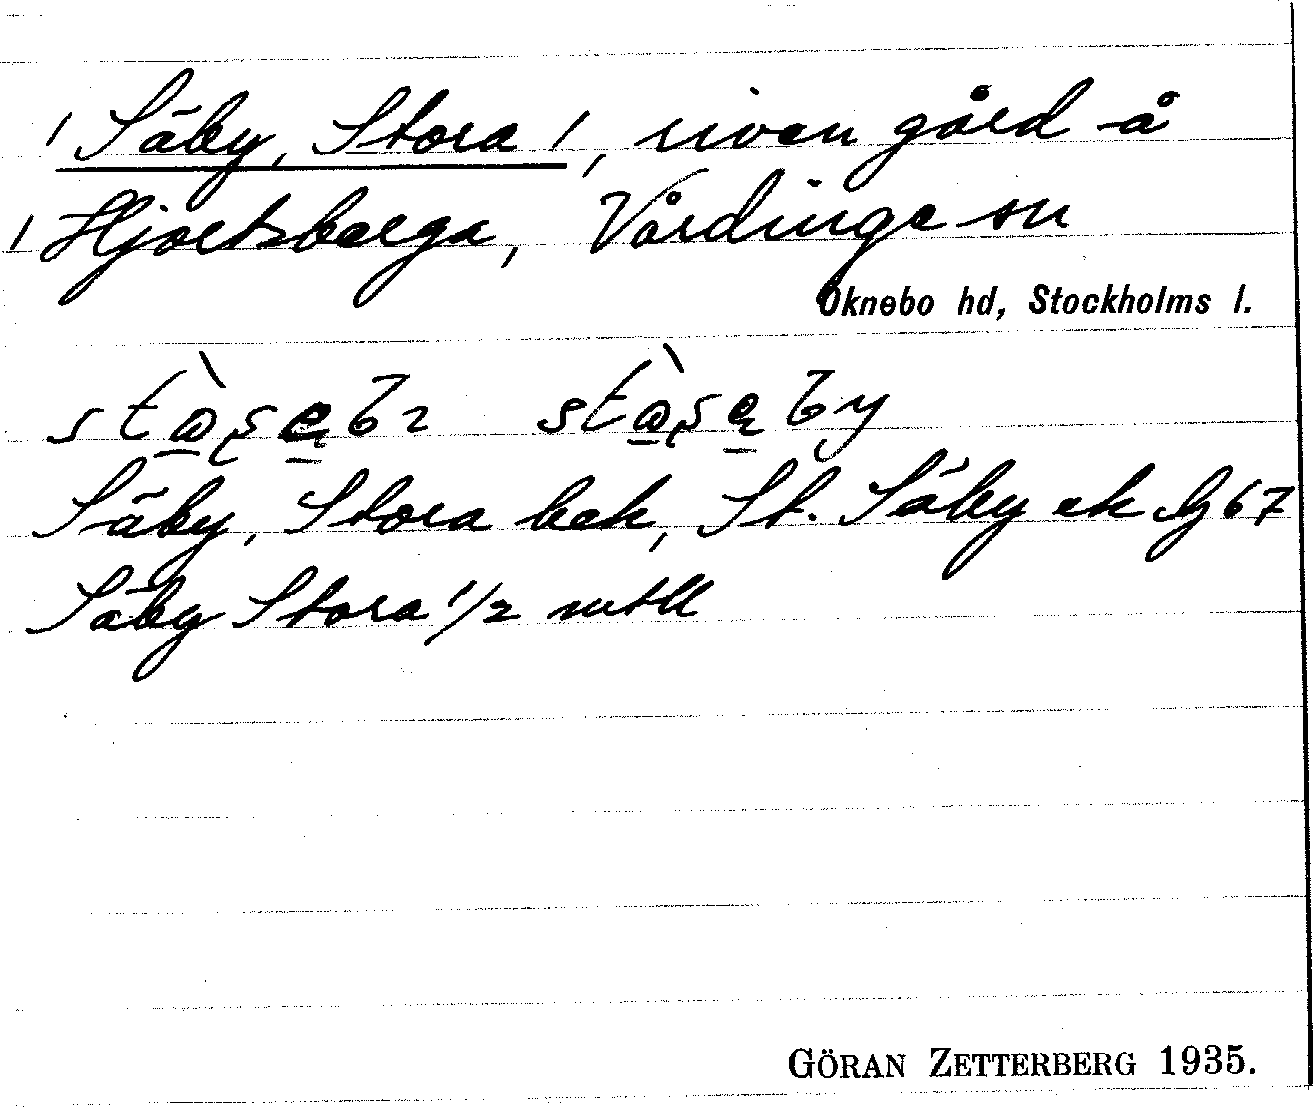 / Säby, Stora /, riven gård å
/ Hjortsberga, Vårdinge sn
Öknebo hd, Stockholms l.
Säby, Stora bek, St. Säby ek Lj 67
Säby Stora 1/2 mtll
GÖRAN ZETTERBERG 1935.